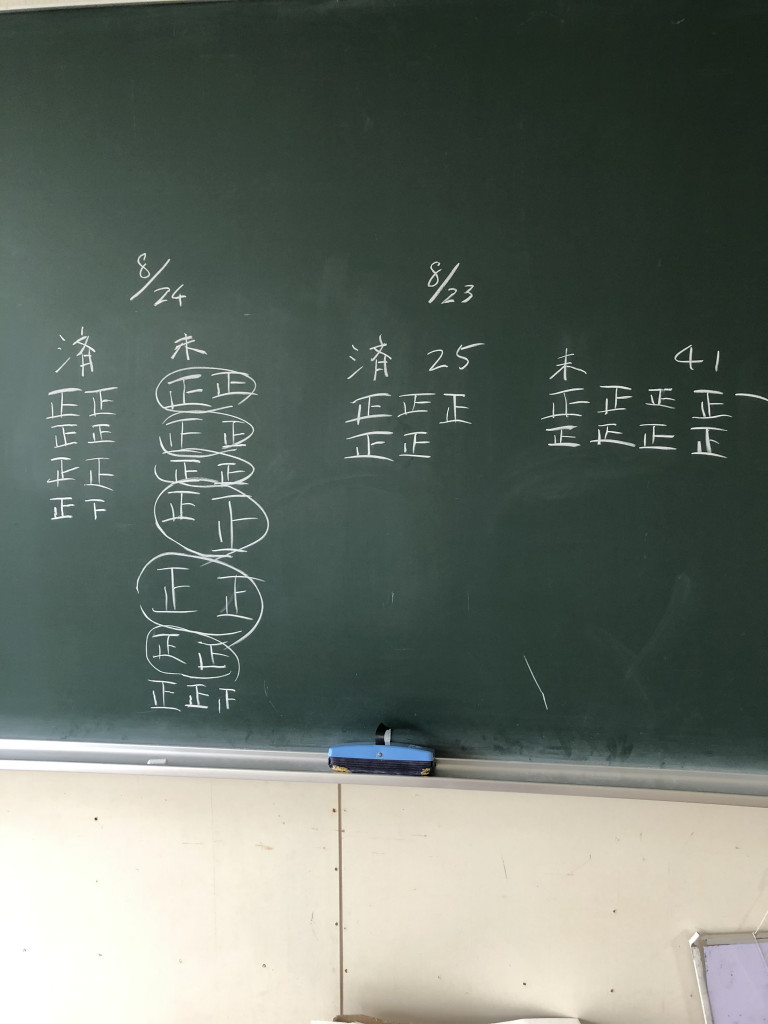 8/24
済 未
正正
正正
正正
正下
正正
正正
正正
正正
正正
正正
正正正
8/23
済 25
正正正
正正
未 41
正正正正一
正正正正